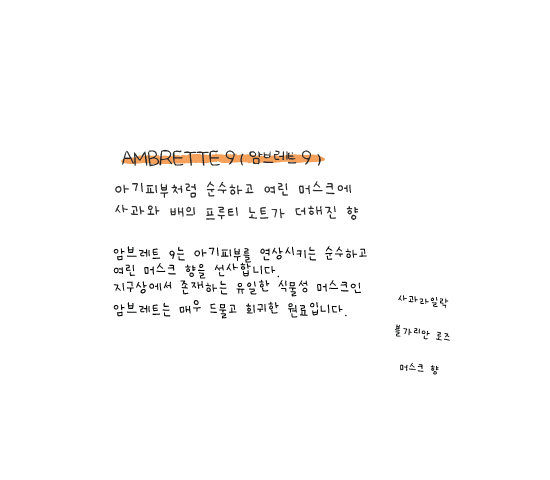 AMBRETTE 9 ( 암브레트 9 )
아기피부처럼 순수하고 여린 머스크에
사과와 배의 프루티 노트가 더해진 향
암브레트 9는 아기피부를 연상시키는 순수하고
여린 머스크 향을 선사합니다.
지구상에서 존재하는 유일한 식물성 머스크인
암브레트는 매우 드물고 희귀한 원료입니다.
사과라일락
불가리안 로즈
머스크 향